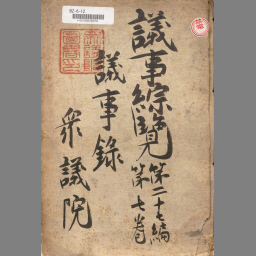 議事綜覧
第二十七編
第七巻
議事録
衆議院